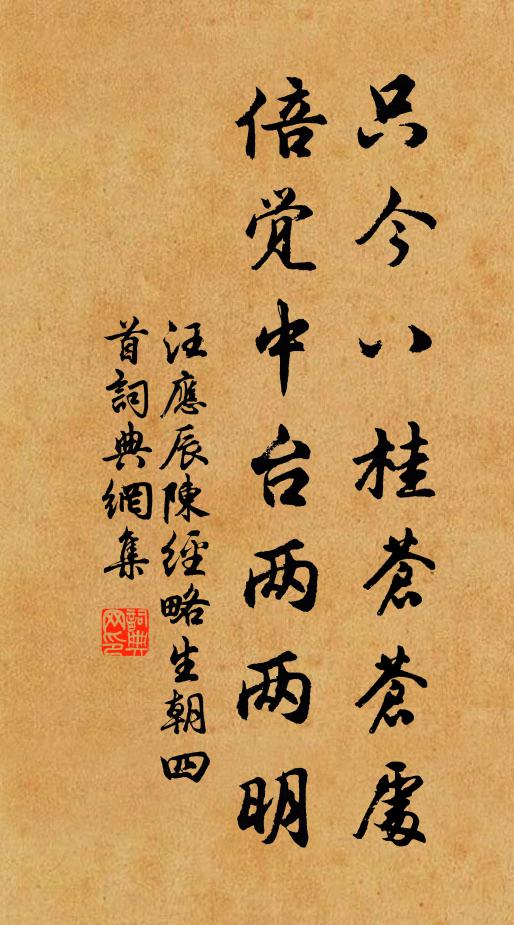 只今八桂蒼蒼處
倍觉中台两两明
汪應辰陳經略生朝四
首詞典網集
詞典
网印